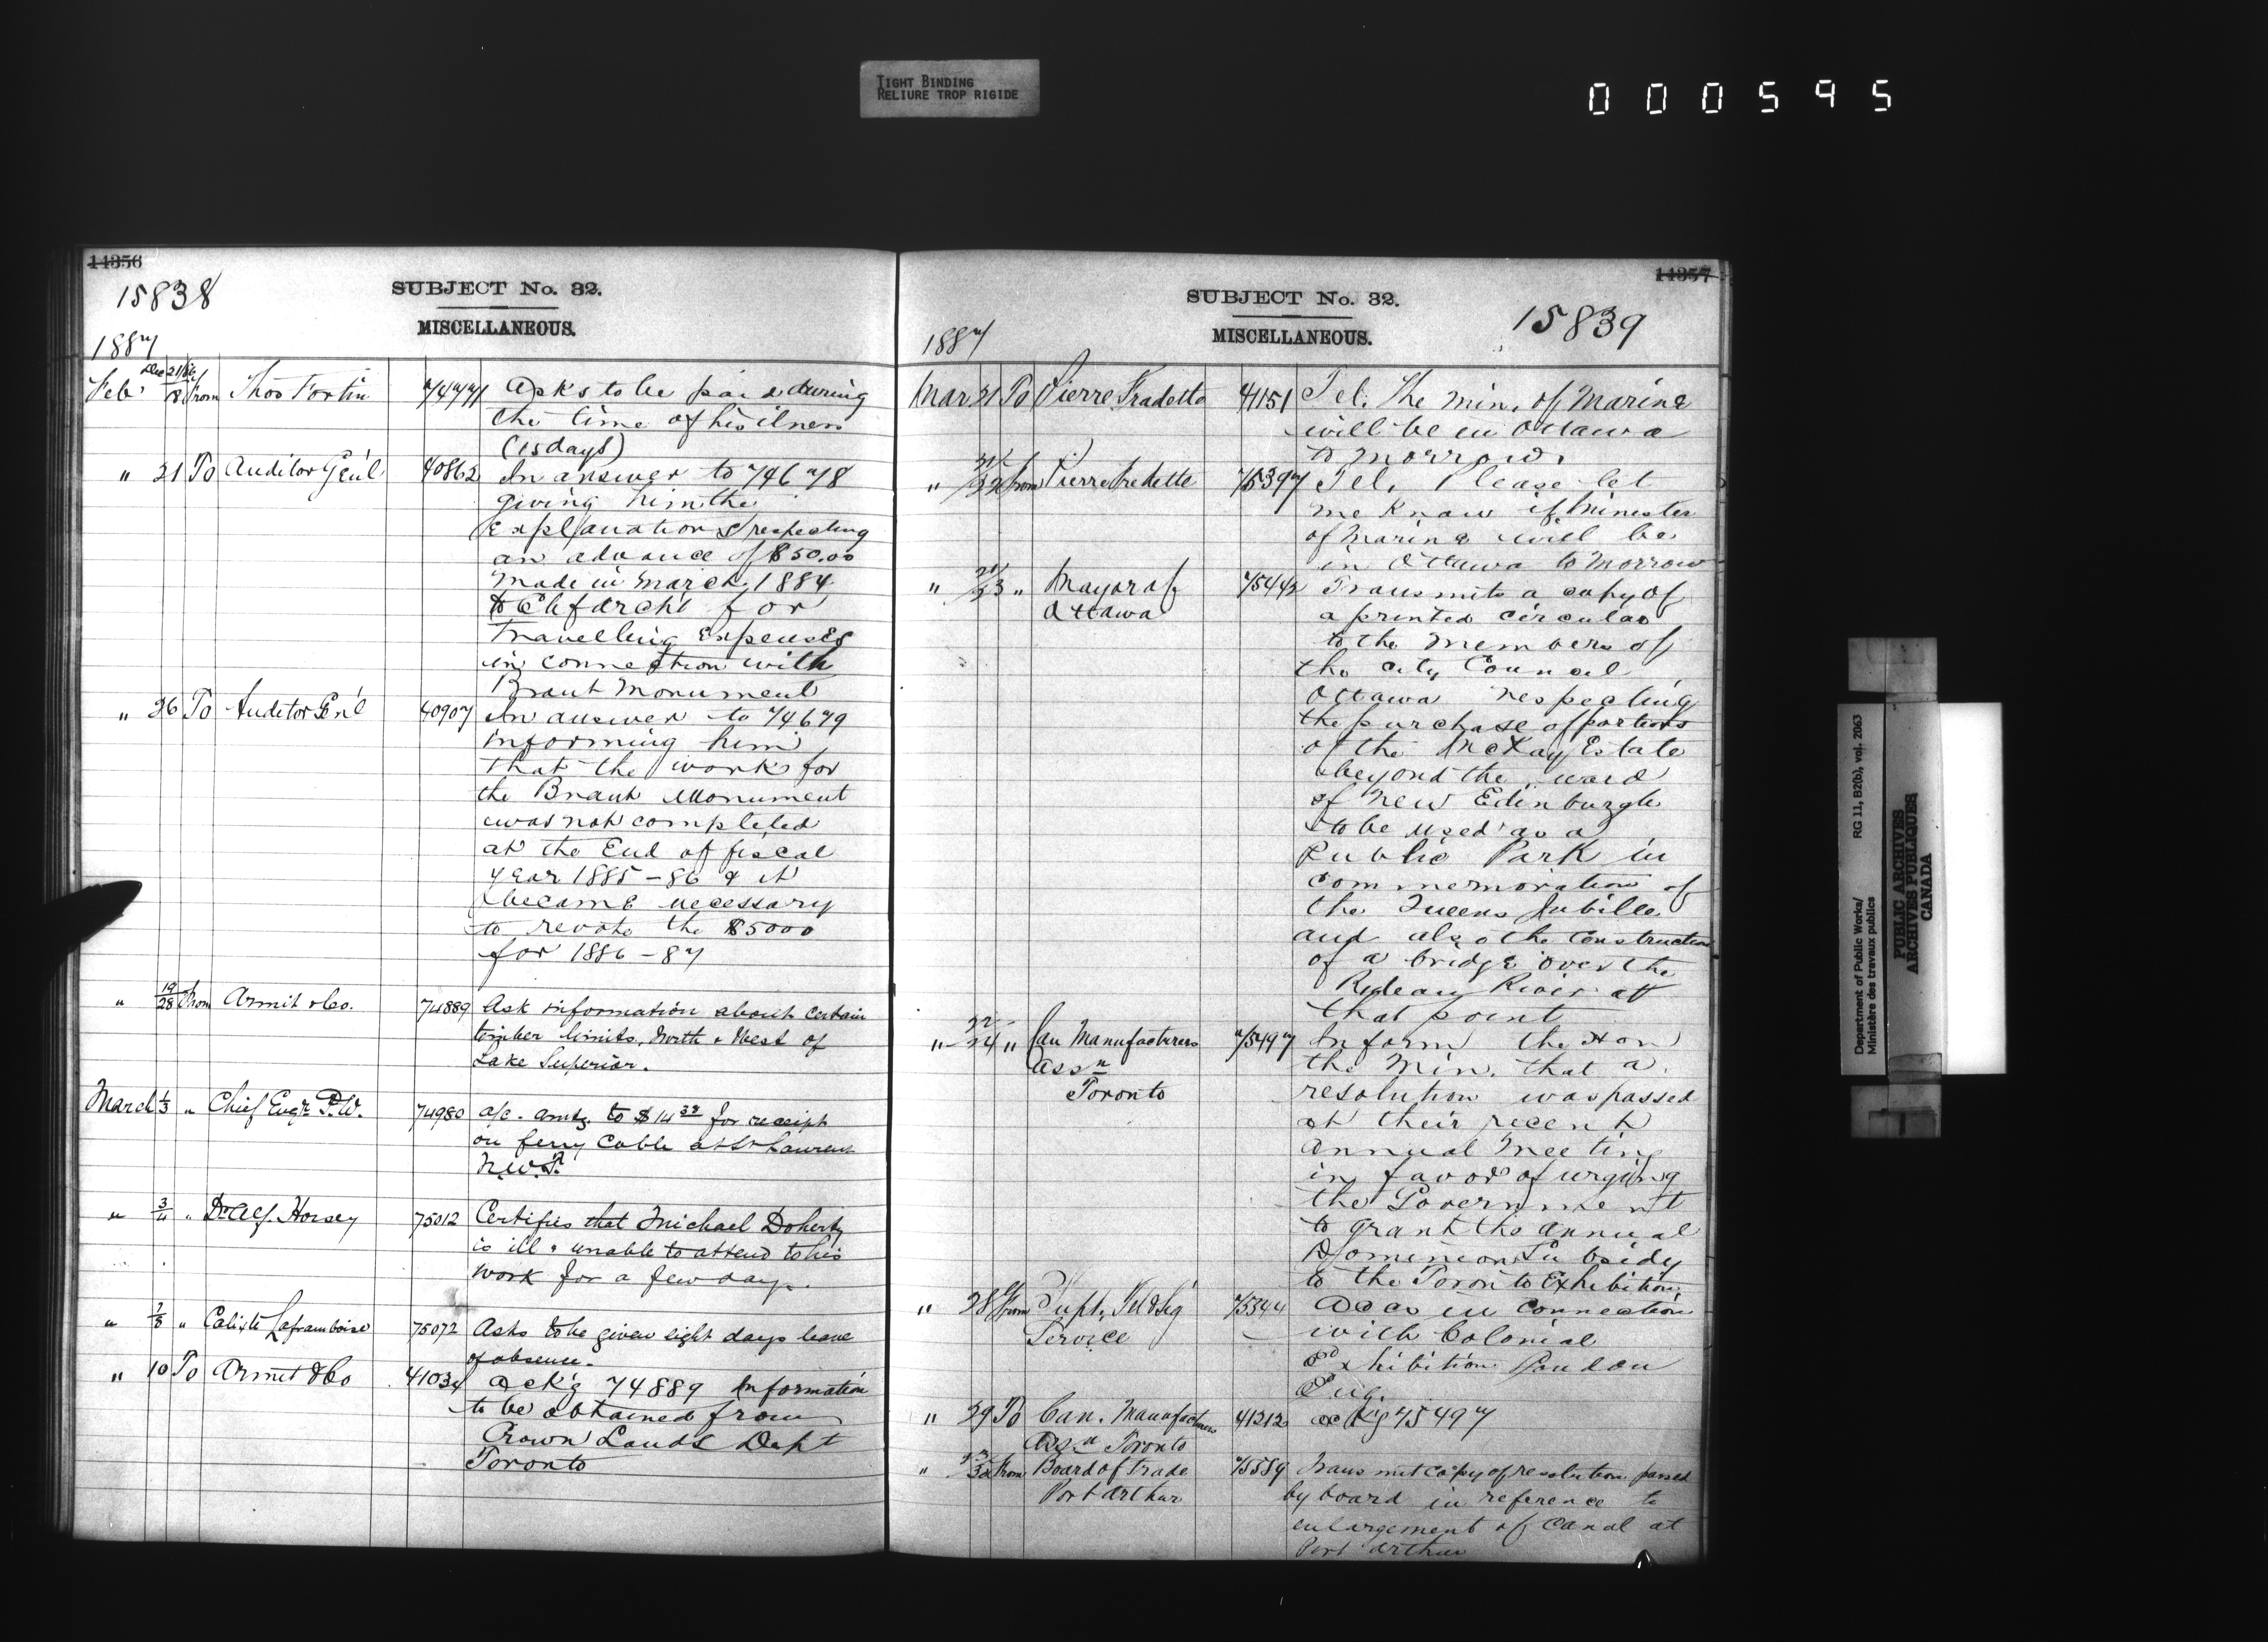 TIGHT BINDING
RELIURE TROP RIGIDE
000595
14356
15838
SUBJECT No. 32.
MISCELLANEOUS.
1887
Feb' Dec 21/86 /8 From Thos Fortin 74771 Asks to be paid during
the time of his ilness
(15 days)
" 21 To Auditor Gen'l 40862 In answer to 74678
giving him the
Explanations respecting
an advance of $50.00
made in March 1884
to Ch f Arch't for
Travelling Expenses
in connection with
Brant Monument
" 26 To Auditor Gen'l 40907 In answer to 74679
informing him
that the works for
the Brant Monument
was not completed
at the End of fiscal
year 1885-86 & it
became necessary
to revote the $5000
for 1886-87
" 19/28 From Armit & Co. 74889 Ask information about certain
timber limits, North & West of
Lake Superior.
March 1/3 " Chief Eng'r P.W. 74980 a/c. amtg. to $14 38 for receipt
on ferry Cable at St Laurent
N.W.T.
" 3/4 " Dr Alf. Horsey 75012 Certifies that Michael Doherty
is ill & unable to attend to his
work for a few days.
" 7/8 " Calixte Laframboise 75072 Asks to be given eight days leave
of absence.
" 10 To Armit & Co 41034 Ack'g 74889 Information
to be obtained from
Crown Lands Dept
Toronto
14357
15839
SUBJECT No. 32.
MISCELLANEOUS.
1887
Mar 21 To Pierre Fradette 41151 Tel. The Min. of Marine
will be in Ottawa
to morrow.
" 21/22 From Pierre Fredette 75397 Tel. Please let
me know if Minister
of Marine will be
in Ottawa to Morrow
" 21/23 " Mayor of 75442 Transmits a copy of
Ottawa a printed circular
to the Members of
the City Council
Ottawa respecting
the purchase of portions
of the McKay Estate
beyond the ward
of New Edinburgh
to be used as a
Public Park in
commemoration of
the Queens Jubilee
and also the Construction
of a bridge over the
Rideau River at
that point
" 22/24 " Can Manufacturers 75497 Inform the Hon
Ass n the Min. that a
Toronto resolution was passed
at their recent
Annual Meeting
in favor of urging
the Government
to grant the annual
Dominion Subsidy
to the Toronto Exhibition
" 28 From Supt. Tel & Sig 75344 Accs in connection
Service with Colonial
Exhibition London
Eng.
" 29 To Can. Manufacturers 41212 ack'g 75497
Ass n Toronto
" 30 From Board of Trade 75559 Transmit copy of resolution passed
Port Arthur by board in reference to
enlargement of Canal at
Port Arthur
Department of Public Works/
Ministère des travaux publics
RG 11, B2(b), vol. 2063
PUBLIC ARCHIVES
ARCHIVES PUBLIQUES
CANADA